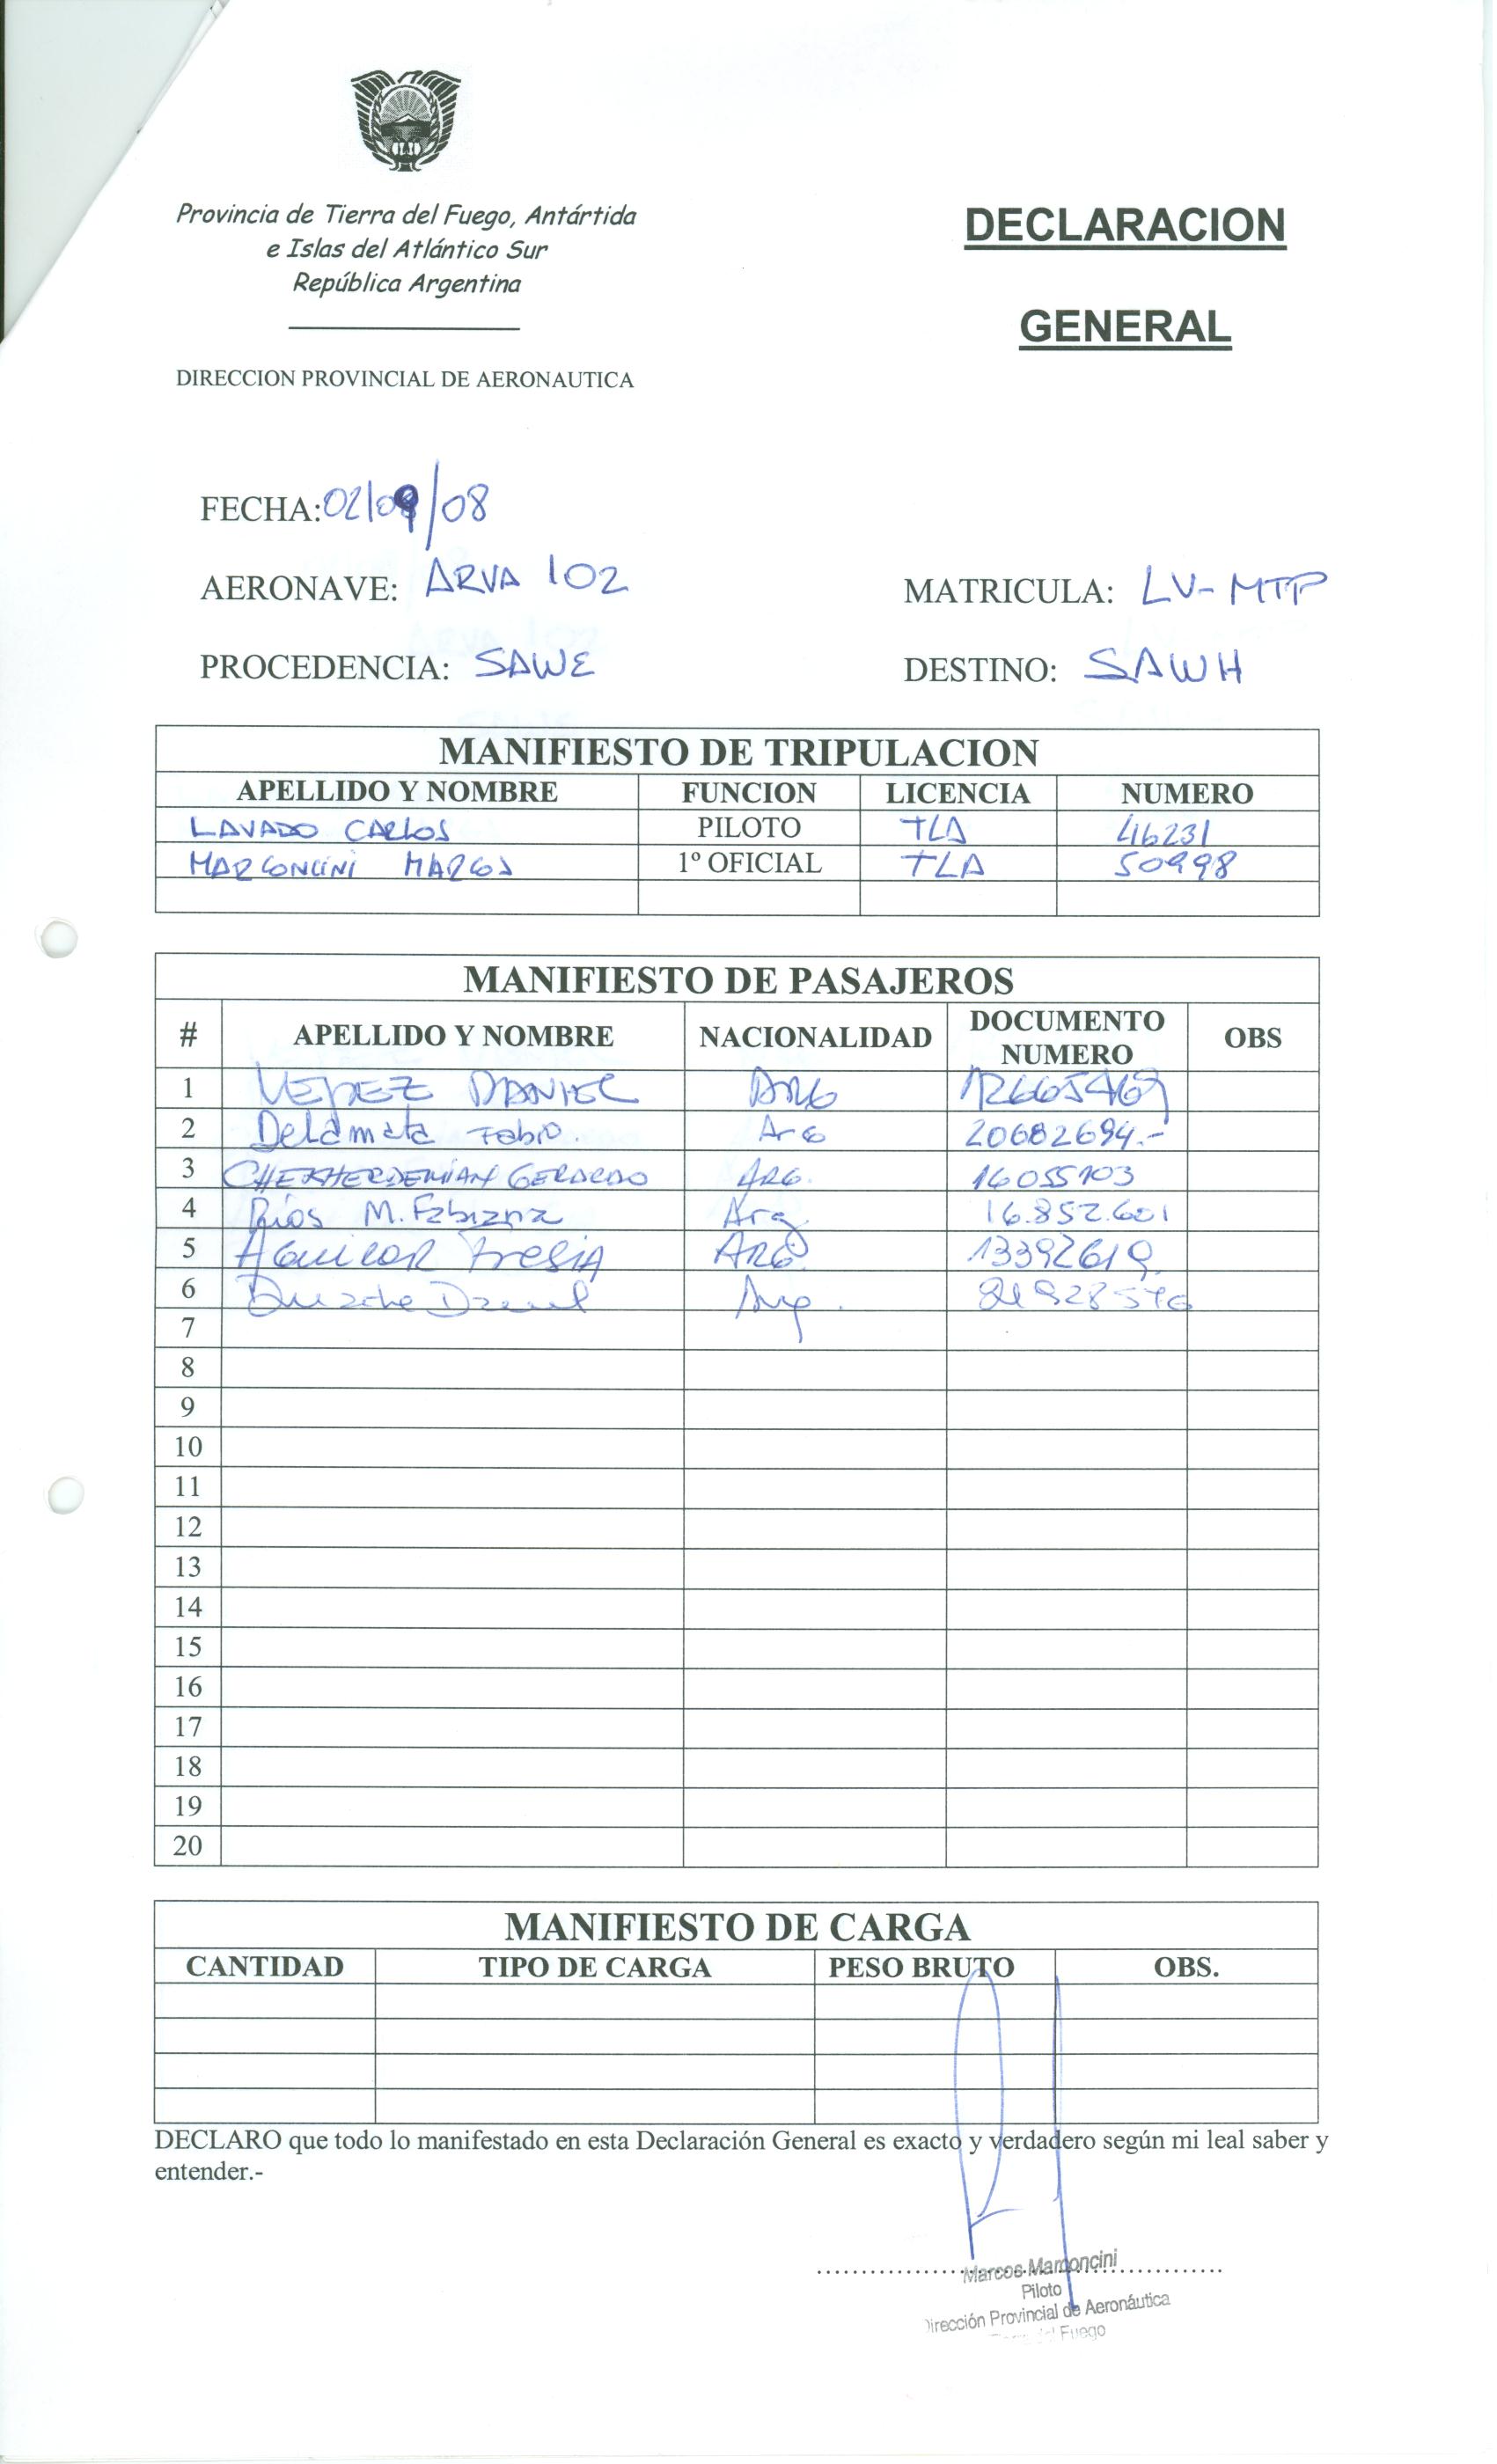 Provincia de Tierra del Fuego, Antártida
e Islas del Atlántico Sur
República Argentina
DIRECCION PROVINCIAL DE AERONAUTICA
DECLARACION
GENERAL
FECHA: 02/09/08
AERONAVE: ARVA 102
MATRICULA: LV-MTP
PROCEDENCIA: SAWE
DESTINO: SAWH
MANIFIESTO DE TRIPULACION
APELLIDO Y NOMBRE FUNCION LICENCIA NUMERO
LAVADO CARLOS PILOTO TLA 46231
MARCONCINI MARCOS 1º OFICIAL TLA 50998
MANIFIESTO DE PASAJEROS
# APELLIDO Y NOMBRE NACIONALIDAD DOCUMENTO NUMERO OBS
1 DANIEL ARG 12665469
2 Delamata Fabio. Arg 20682694.-
3 CHEKHERDEMIAN GERARDO ARG. 16055103
4 Ríos M. Fabiana Arg 16.852.601
5 AGUILAR FRESIA ARG 13392619.
6 Arg.
7
8
9
10
11
12
13
14
15
16
17
18
19
20
MANIFIESTO DE CARGA
CANTIDAD TIPO DE CARGA PESO BRUTO OBS.
DECLARO que todo lo manifestado en esta Declaración General es exacto y verdadero según mi leal saber y
entender.-
Marcos Marconcini
Piloto
Dirección Provincial de Aeronáutica
del Fuego